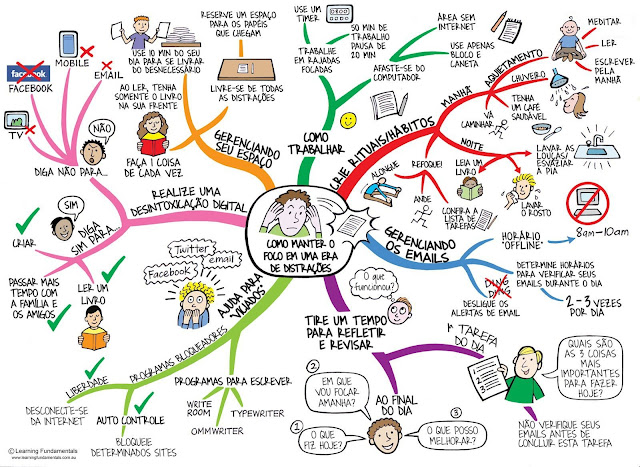 COMO MANTER O
FOCO EM UMA ERA
DE DISTRAÇÕES
GERENCIANDO
SEU ESPAÇO
RESERVE UM ESPAÇO
PARA OS PAPÉIS
QUE CHEGAM
USE 10 MIN DO SEU
DIA PARA SE LIVRAR
DO DESNECESSÁRIO
LIVRE-SE DE TODAS
AS DISTRAÇÕES
AO LER, TENHA
SOMENTE O LIVRO
NA SUA FRENTE
FAÇA 1 COISA
DE CADA VEZ
COMO
TRABALHAR
USE UM
TIMER
TRABALHE
EM RAJADAS
FOCADAS
50 MIN DE
TRABALHO
PAUSA DE
20 MIN
AFASTE-SE DO
COMPUTADOR
ÁREA SEM
INTERNET
USE APENAS
BLOCO E
CANETA
CRIE RITUAIS/HÁBITOS
MANHÃ
AQUIETAMENTO
MEDITAR
LER
ESCREVER
PELA MANHÃ
CHUVEIRO
TENHA
UM CAFÉ
SAUDÁVEL
VÁ
CAMINHAR
NOITE
LAVAR AS
LOUÇAS/
ESVAZIAR
A PIA
LAVAR
O ROSTO
LEIA UM
LIVRO
REFOQUE!
ALONGUE
ANDE
CONFIRA A
LISTA DE
TAREFAS
GERENCIANDO
OS EMAILS
HORÁRIO
"OFFLINE"
8am-10am
DETERMINE HORÁRIOS
PARA VERIFICAR SEUS
EMAILS DURANTE O DIA
2-3 VEZES
POR DIA
DING
DING
DESLIGUE OS
ALERTAS DE EMAIL
TIRE UM TEMPO
PARA REFLETIR
E REVISAR
O que
funcionou?
1ª TAREFA
DO DIA
QUAIS SÃO
AS 3 COISAS
MAIS
IMPORTANTES
PARA FAZER
HOJE?
NÃO VERIFIQUE SEUS
EMAILS ANTES DE
CONCLUIR ESTA TAREFA
AO FINAL
DO DIA
1
O QUE
FIZ HOJE?
2
EM QUE
VOU FOCAR
AMANHÃ?
3
O QUE POSSO
MELHORAR?
AJUDA PARA
"VICIADOS"
Twitter
email
Facebook
PROGRAMAS BLOQUEADORES
LIBERDADE
DESCONECTE-SE
DA INTERNET
AUTO CONTROLE
BLOQUEIE
DETERMINADOS SITES
PROGRAMAS PARA ESCREVER
WRITE
ROOM
OMMWRITER
TYPEWRITER
REALIZE UMA
DESINTOXICAÇÃO DIGITAL
DIGA NÃO PARA...
NÃO
facebook
FACEBOOK
MOBILE
EMAIL
TV
DIGA
SIM PARA...
SIM
CRIAR
PASSAR MAIS
TEMPO COM
A FAMÍLIA E
OS AMIGOS
LER UM
LIVRO
© Learning Fundamentals
www.learningfundamentals.com.au